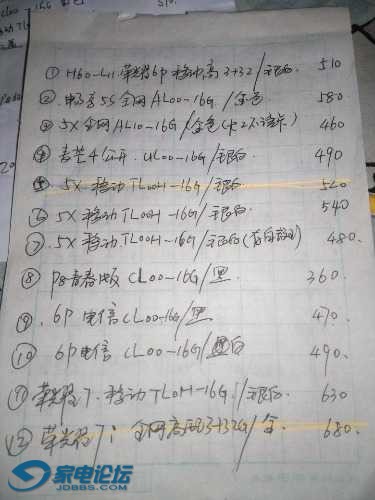 ① H60-L11 荣耀6p 移动高3+32/银白 510
② 畅享5S全网AL00-16G/金色 580
③ 5X全网AL10-16G/金色(卡2不读卡) 460
④ 麦芒4公开 UL00-16G/银白 490
⑤ 5X移动TL00H-16G/银白 520
⑥ 5X移动TL00H-16G/银白 540
⑦ 5X移动TL00H-16G/银白 480
⑧ P8青春版CL00-16G/黑 360
⑨ 6P电信CL00-16G/黑 470
⑩ 6P电信CL00-16G/白 490
⑪ 荣耀7.移动TL0H-16G/银白 630
⑫ 荣耀7:全网高配3+32G/金 680
家电论坛
JDBBS.COM